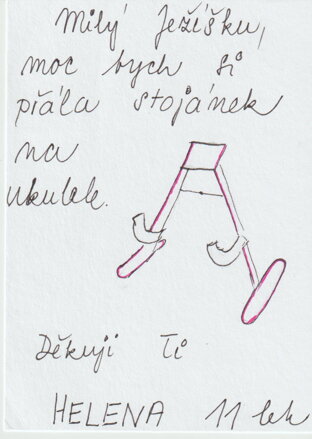 Milý Ježíšku,
moc bych si
přála stojánek
na
ukulele.
Děkuji Ti
HELENA 11 let